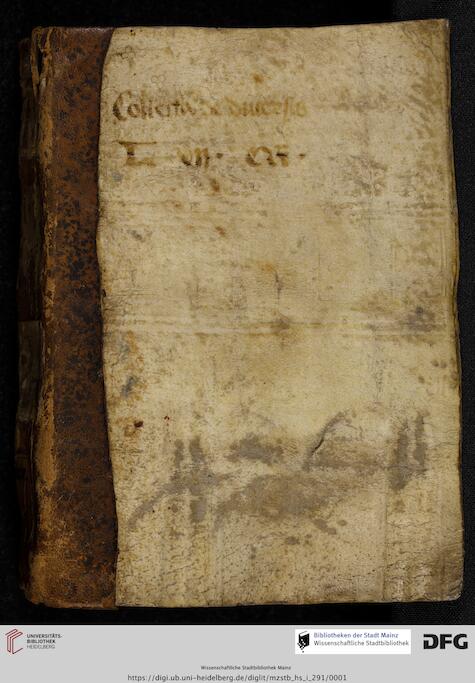 Collectio de diversis
L VII
UNIVERSITÄTS-
BIBLIOTHEK
HEIDELBERG
Bibliotheken der Stadt Mainz
Wissenschaftliche Stadtbibliothek
DFG
Wissenschaftliche Stadtbibliothek Mainz
https://digi.ub.uni-heidelberg.de/diglit/mzstb_hs_i_291/0001